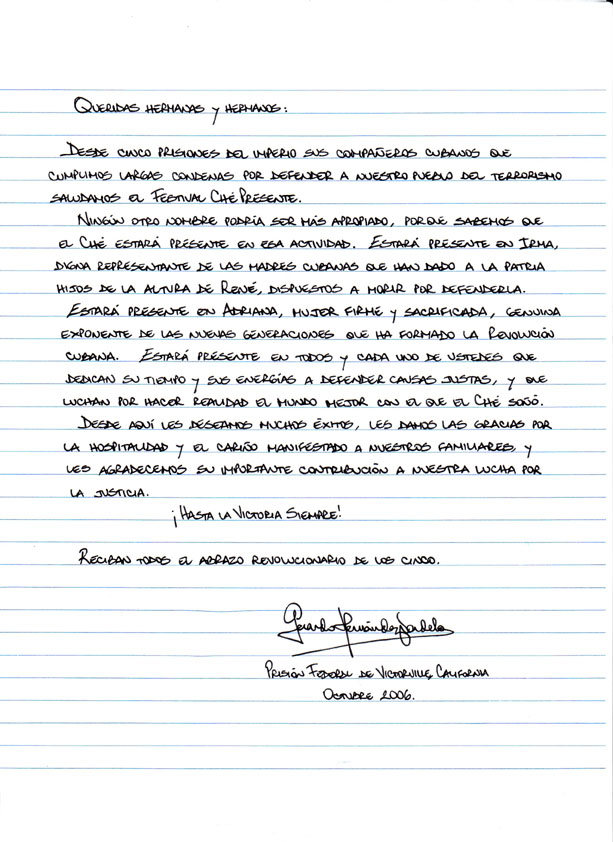 Queridas hermanas y hermanos:
Desde cinco prisiones del imperio sus compañeros cubanos que
cumplimos largas condenas por defender a nuestro pueblo del terrorismo
saludamos el Festival Ché Presente.
Ningún otro nombre podría ser más apropiado, porque sabemos que
el Ché estará presente en esa actividad. Estará presente en Irma,
digna representante de las madres cubanas que han dado a la patria
hijos de la altura de René, dispuestos a morir por defenderla.
Estará presente en Adriana, mujer firme y sacrificada, genuina
exponente de las nuevas generaciones que ha formado la Revolución
cubana. Estará presente en todos y cada uno de ustedes que
dedican su tiempo y sus energías a defender causas justas, y que
luchan por hacer realidad el mundo mejor con el que el Ché soñó.
Desde aquí les deseamos muchos éxitos, les damos las gracias por
la hospitalidad y el cariño manifestado a nuestros familiares, y
les agradecemos su importante contribución a nuestra lucha por
la justicia.
¡Hasta la Victoria Siempre!
Reciban todos el abrazo revolucionario de los cinco.
Gerardo Hernández Nordelo
Prisión Federal de Victorville, California
Octubre 2006.